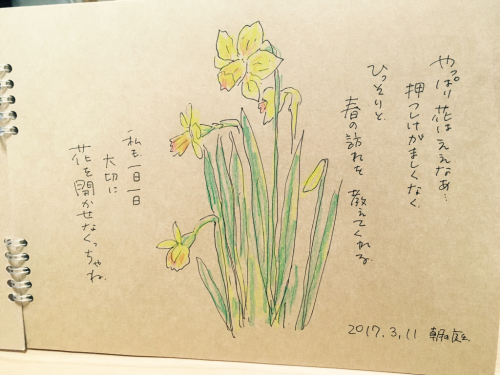 やっぱり花はええなぁ…
押つけがましくなく
ひっそりと
春の訪れを 教えてくれる。
私も、一日一日
大切に
花を開かせなくっちゃね。
2017.3.11 朝の庭